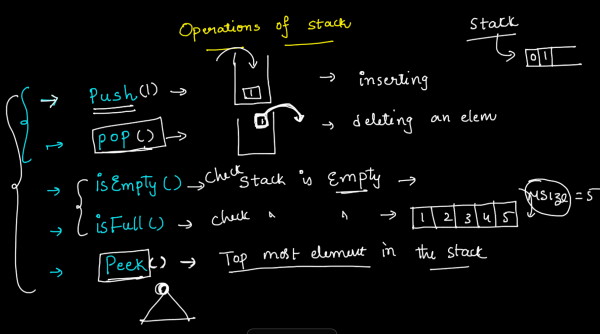 Operations of stack
Stack
0 1
Push(1) → 1 → inserting
pop() → 1 → deleting an elem
isEmpty() → check Stack is Empty →
isFull() → check " " → 1 2 3 4 5 size = 5
Peek() → Top most element in the stack